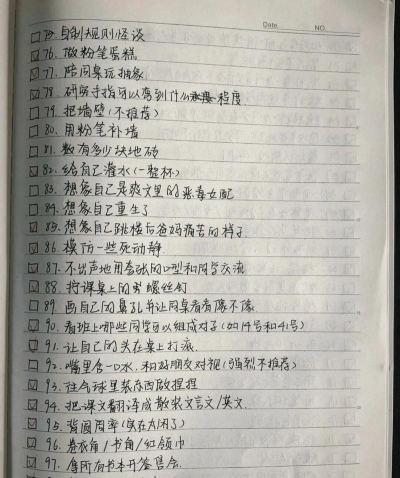 Date. NO.
75. 自制规则怪谈
76. 做粉笔蛋糕
77. 陪同桌玩抽象
78. 研究手指可以弯到什么程度
79. 把墙壁(不推荐)
80. 用粉笔补墙
81. 数有多少块地砖
82. 给自己灌水(一整杯)
83. 想象自己是爽文里的恶毒女配
84. 想象自己重生了
85. 想象自己跳楼后爸妈痛苦的样子
86. 模仿一些死动静
87. 不出声地用夸张的口型和同学交流
88. 拧课桌上的螺丝钉
89. 画自己的鼻孔并让同桌看看像不像
90. 看班上哪些同学可以组成对子(如14号和41号)
91. 让自己的头在桌上打滚
92. 嘴里含一口水,和好朋友对视(强烈不推荐)
93. 往气球里装东西做捏捏
94. 把课文翻译成散装文言文/英文
95. 背圆周率(实在太闲了)
96. 卷衣角/书角/红领巾
97. 拿所有书本开签售会